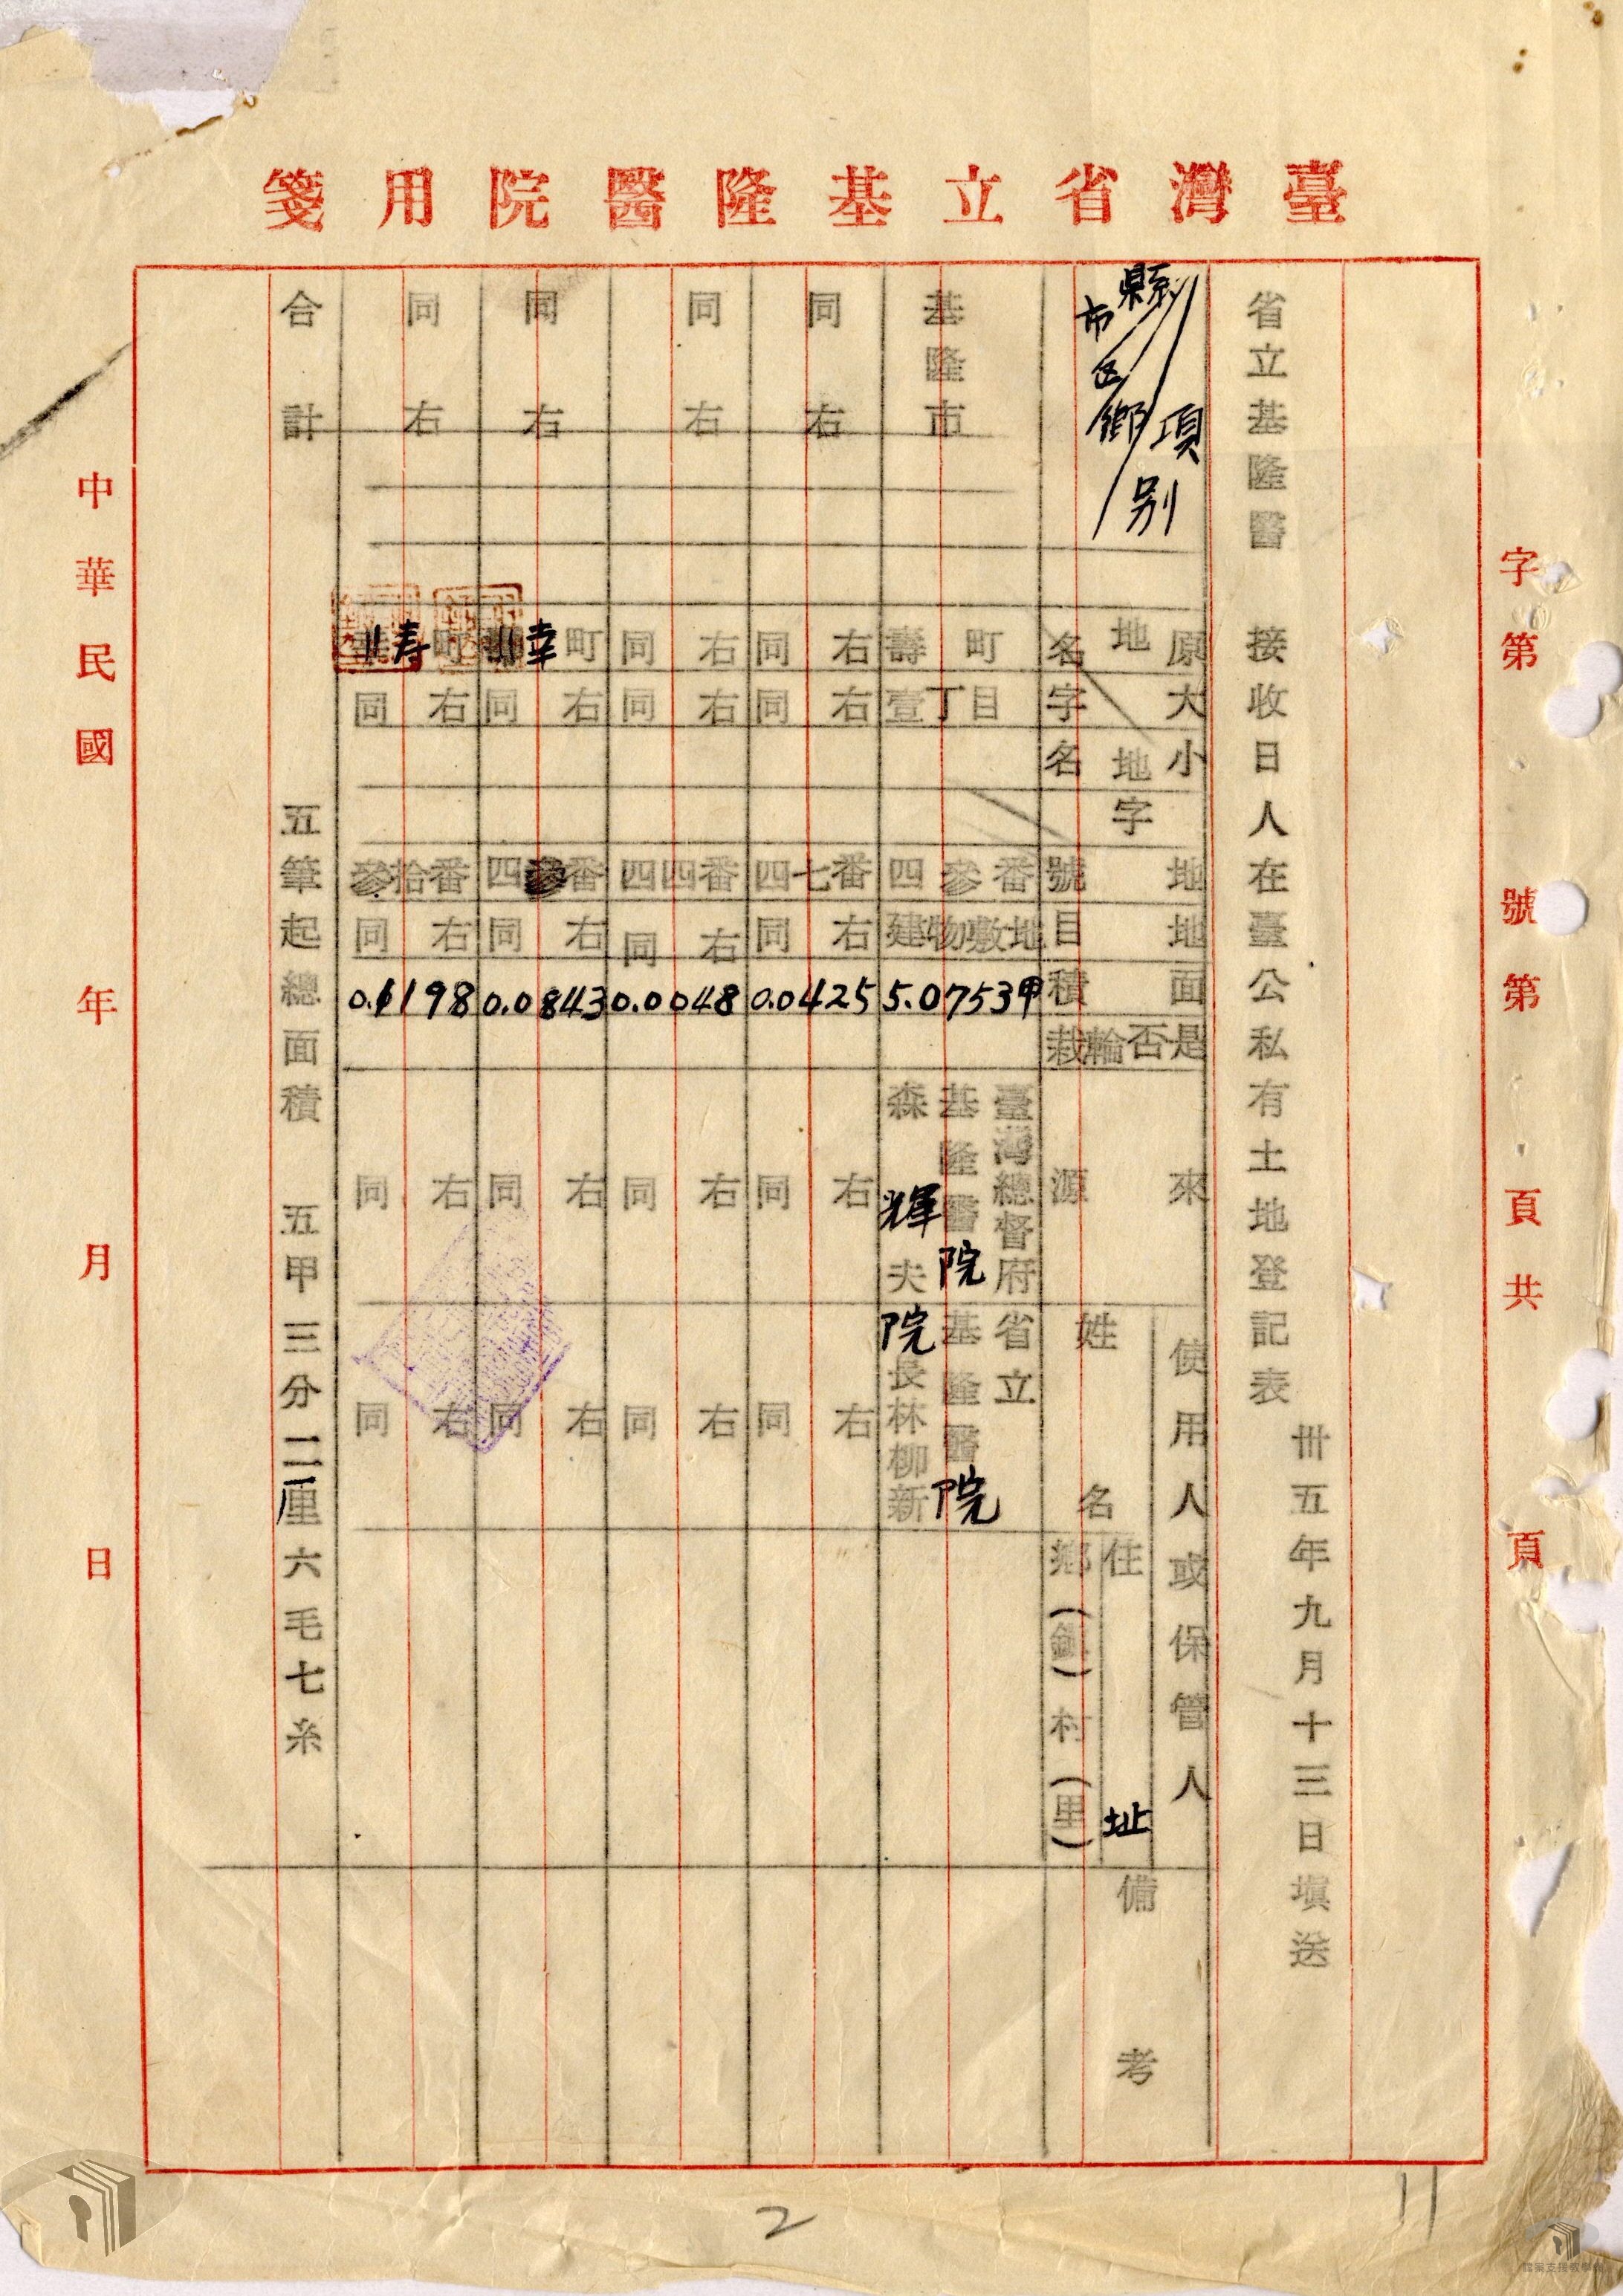 臺灣省立基隆醫院用箋
字第 號第 頁共 頁
卅五年九月十三日填送
省立基隆醫 接收日人在臺公私有土地登記表
項別
縣市
區鄉
原地名
大字名
小地
字
地號
地目
面積
是否輪栽
來源
使用人或保管人
姓名
住址
鄉(鎮)村(里)
備考
基隆市 壽町 壹丁目 四參番 建物敷地 5.0753甲 臺灣總督府基隆醫院 森輝夫 省立基隆醫院 院長林柳新
同右 同右 同右 四七番 同右 0.0425 同右 同右
同右 同右 同右 四四番 同右 0.0048 同右 同右
同右 幸町 同右 四參番 同右 0.0843 同右 同右
同右 寿町 同右 參拾番 同右 0.1198 同右 同右
合計 五筆起總面積 五甲三分二厘六毛七糸
中華民國 年 月 日
2
11